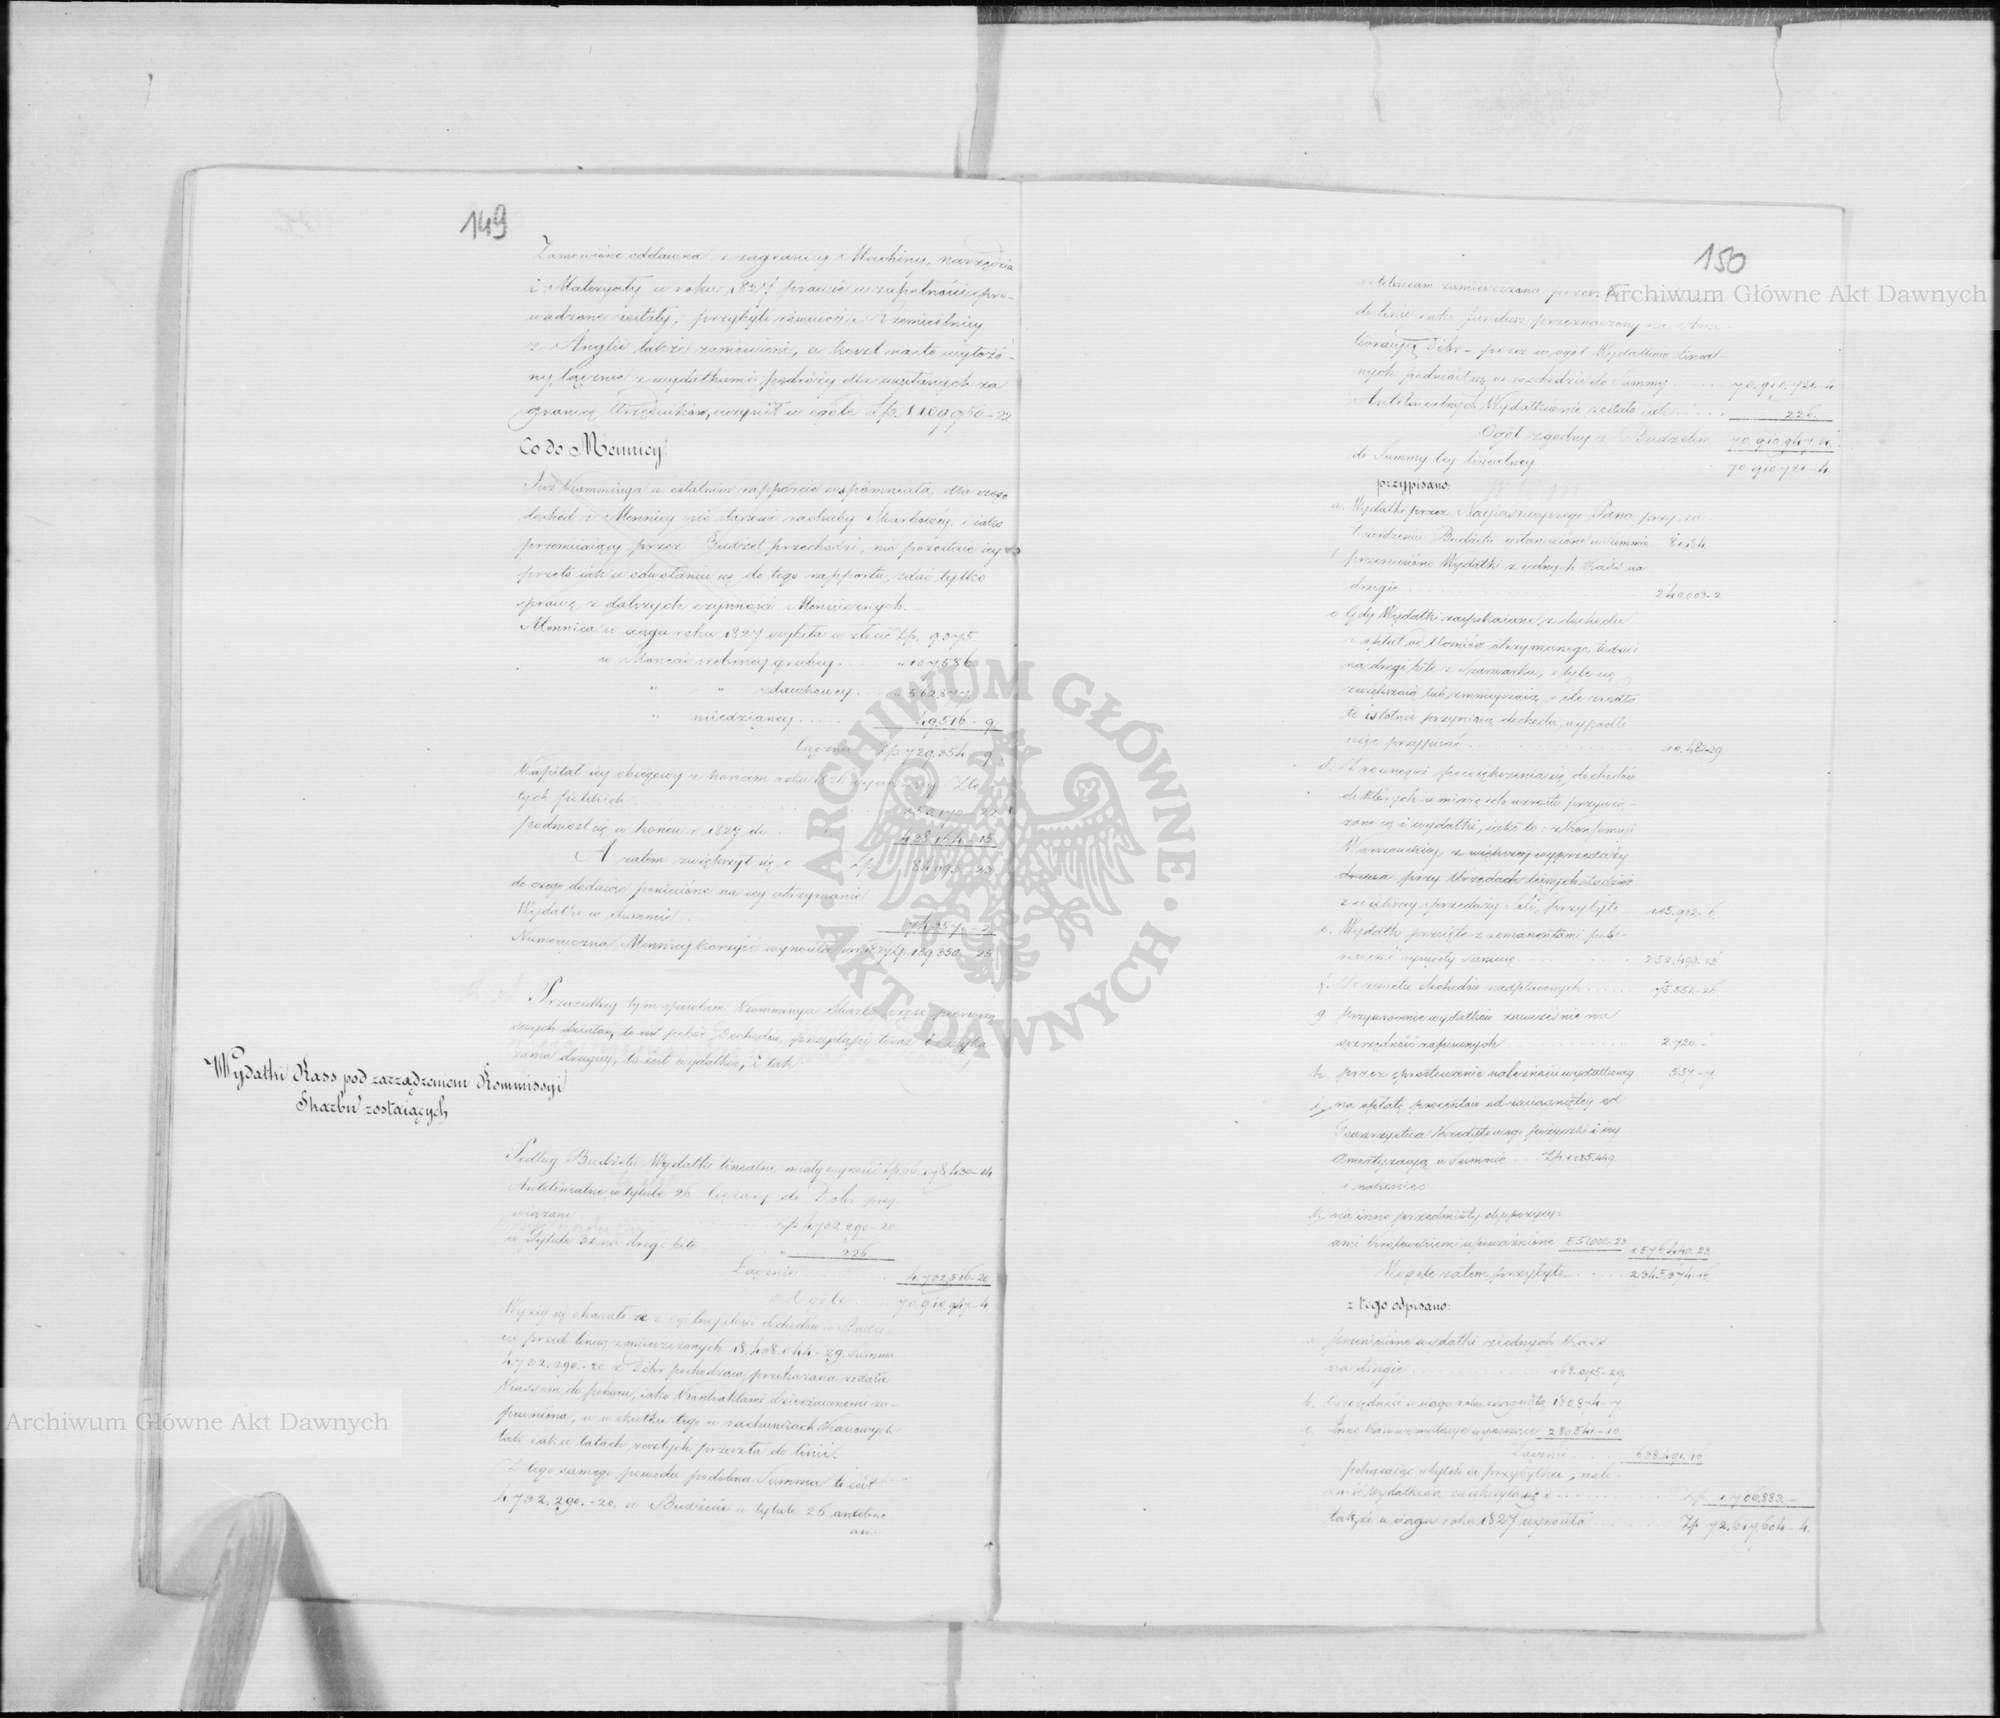 149
Zamówione oddawna z zagranicy Machiny, narzędzia
i Materyały w roku 1827 prawie w zupełności spro-
wadzone zostały; przybyli również i Rzemieślnicy
z Anglii także zamówieni, a koszt na to wyłożo-
ny, łącznie z wydatkami podróży dla wysłanych za
granicę Urzędników, uczynił w ogóle Złp. 1109950-22
Co do Mennicy
Już Kommissya w ostatnim rapporcie wspomniała, dla czego
dochód z Mennicy nie stanowi rachuby Skarbowéy, i jako
przemijający przez Budżet przechodzi, nie pozostaie iey
przeto iak w odwołaniu się do tego rapportu, zdać tylko
sprawę z dalszych czynności Menniczych.
Mennica w ciągu roku 1827 wybiła w złocie Złp. 9375
w Monecie srebrney grubey 107586
" " zdawkowey 562877
" miedzianey 49516-9
Łącznie Złp. 729354-9
Kapitał iey obiegowy z końcem roku 1826 wynoszący Zło-
tych polskich
podniósł się w końcu r. 1827 do 438164-15
A zatem zwiększył się o Złp. 84993-23
do czego dodaiąc poniesione na iey utrzymanie
Wydatki w summie
Numeryczna Mennicy korzyść wynosiła Złp. 139350-25
Przeszedłszy tym sposobem Kommissya Skarbu część pierwszą
swych działań, to iest pobór Dochodów, przystępuie teraz do wyka-
zania drugiey, to iest wydatków, i tak
Wydatki Kass pod zarządzeniem Kommissyi
Skarbu zostaiących
Podług Budżetu Wydatki linealne miały wynosić Złp. 66178430-14
Antelinealne w tytule 26 Ciężary do Dóbr przy-
wiązane Złp. 4732290-20
w Tytule 32 na drogi bite 226
Łącznie 4732516-20
Ogółem 70910947-4
Wyżey się okazało że z ogólney ilości dochodów w Budże-
cie przed linią zamieszczonych 18.438.044-29. summa
4732.290.-20 z Dóbr pochodząca, przekazana została
Kassom do poboru, iako Kontraktami dzierżawnemi za-
pewniona, a w skutku tego w rachunkach Kassowych
tak iak w latach zeszłych przeszła do linii.
Z tego samego powodu podobna Summa to iest
4732.290.-20. w Budżecie w tytule 26 anteline-
am
150
antelineam zamieszczona przeszła
do linii iako fundusz przeznaczony na Ame-
lioracyą Dóbr - przez co ogół Wydatków lineal-
nych podniósł się w rozchodzie do Summy 70.910.721-4
Antelinealnych Wydatków nie zostało iak 226
Ogół zgodny z Budżetem 70.910.947.4.
do Summy tey linealney 70.910.721-4
przypisano:
a. Wydatki przez Nayiaśnieyszego Pana przy za-
twierdzeniu Budżetu ustanowione w summie 82184
b. przeniesione Wydatki z iednych Kass na
drugie 240.003-2
c. Gdy Wydatki zaspokaiane z dochodu
z opłat od otrzymanego, tudzież
na drogi bite z szarwarku, o tyle się
zwiększaią lub zmnieyszaią o ile źródła
te istotnie przyniosą dochodu, wypadło
więc przypisać 10.482-29
d. Z równości powiększenia się dochodów
do których w miarę ich wzrostu przywią-
zane są i wydatki, iako to: z Konsumcyi
Warszawskiey, z większey wyprzedaży
drzewa przy Urzędach leśnych tudzież
z większey sprzedaży Soli, przybyło 105.932-6
e. Wydatki przeszłe z remanentami pobo-
rowemi wyniosły summę 252.490.13
f. Ze zwrotu dochodów nadpłaconych 75.551-26
g. przywrócenie wydatków zawcześnie na
oszczędność zapisanych 2720-
h. przez sprostowanie należności wydatkowey 557-7
i. na opłatę procentów od zaciągniętey od
Towarzystwa Kredytowego pożyczki i iey
Amortyzacyą w Summie Złp. 1025440
i nareszcie
k. na inne przedmioty dyspozycy-
ami Królewskiemi upoważnione 551000-23 1576440.23
W ogóle zatem przybyło 2.345.374-16
z tego odpisano:
a. przeniesione wydatki z iednych Kass
na drugie 168.075-29
b. Oszczędności w ciągu roku osiągnięte 180.874-7
c. Inne kassowe mutacye wynoszące 289.541-10
Łącznie 638.491.16
potrąciwszy ubytek od przybytku, nale-
żność Wydatkowa zwiększyła się o Złp. 1.706883-
tak, że w ciągu roku 1827 wynosiła Złp 72.617.604-4.
Archiwum Główne Akt Dawnych
Archiwum Główne Akt Dawnych
ARCHIWUM GŁÓWNE AKT DAWNYCH